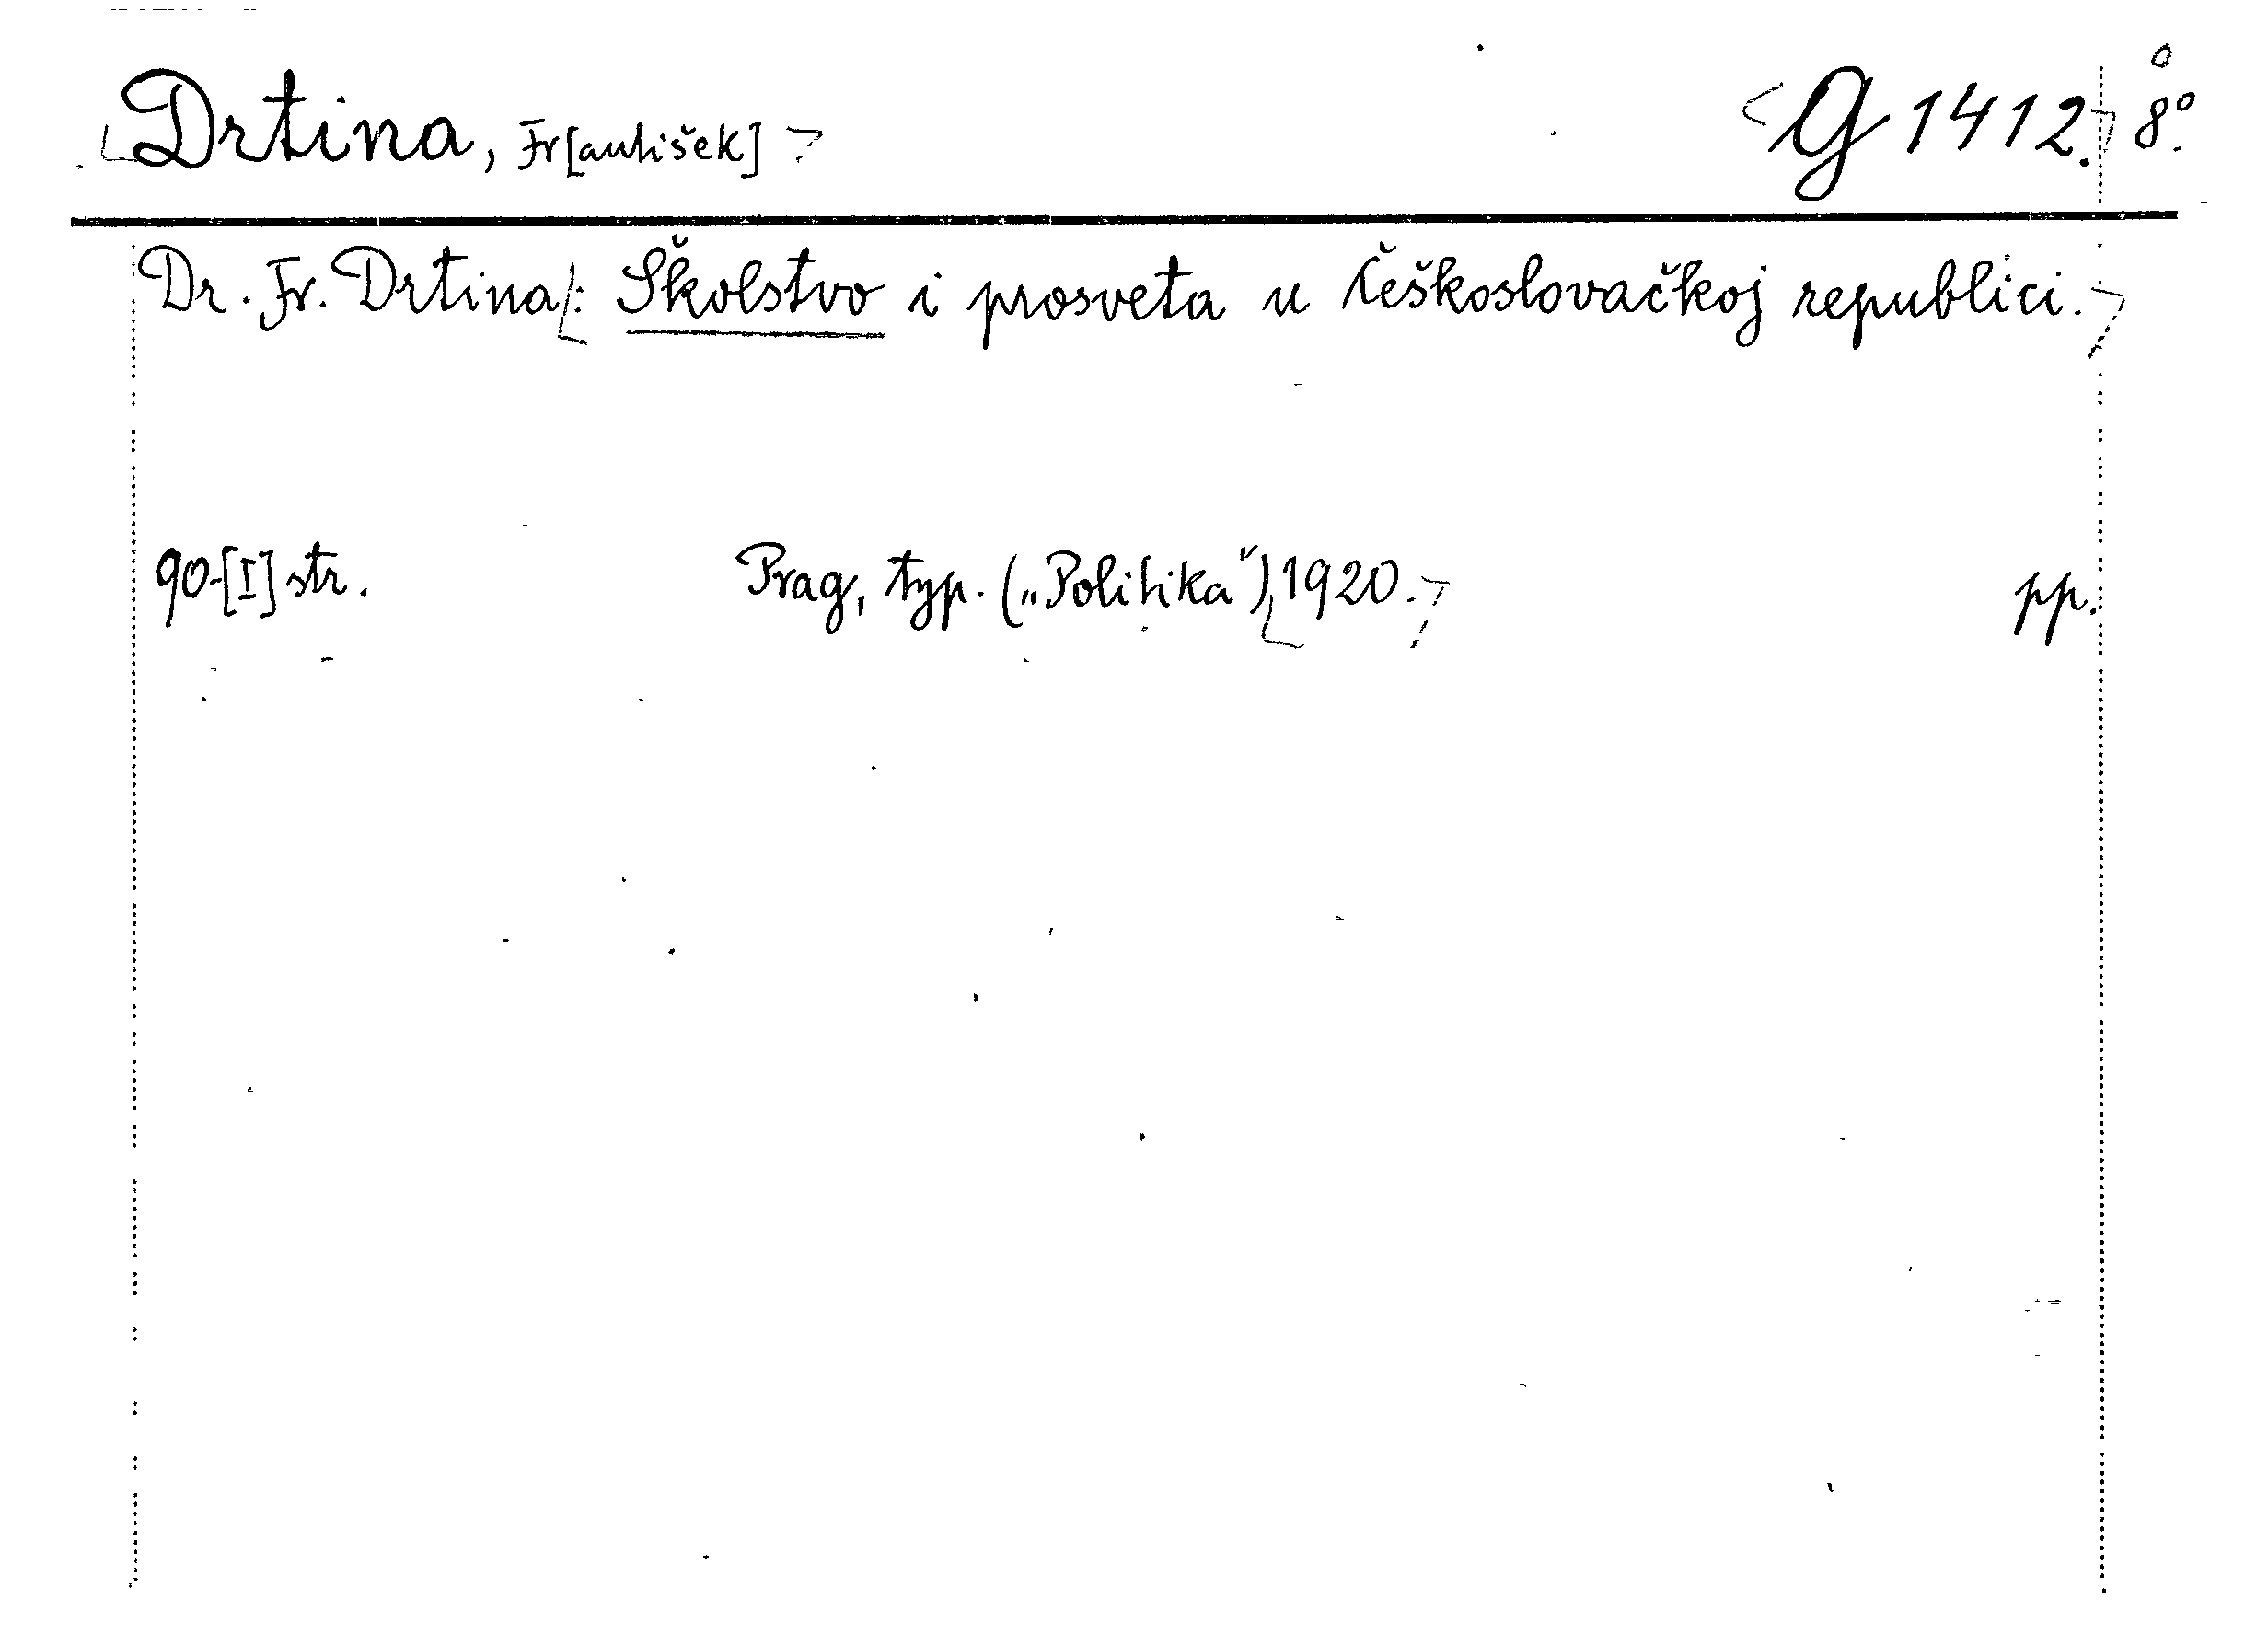 Drtina, Fr[antišek] G 1412. 8º.
Dr. Fr. Drtina: Školstvo i prosveta u Češkoslovačkoj republici.
90-[I] str. Prag, typ. („Politika“) 1920. pp.